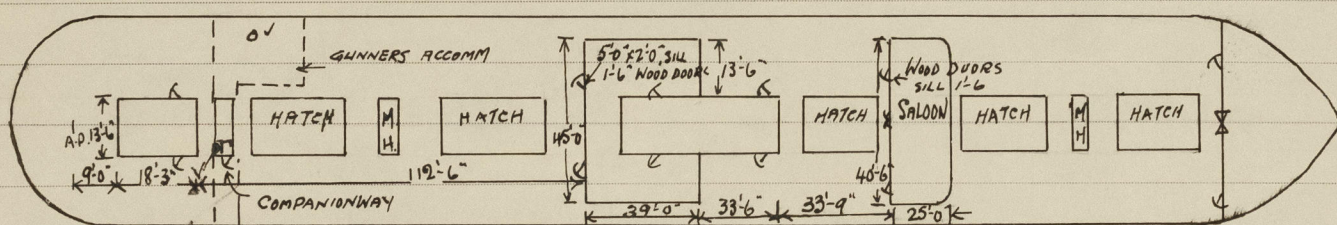 0✓
GUNNERS ACCOMM
5'-0" x 2'-0" SILL
1'-6" WOOD DOORS
13'-6"
WOOD DOORS
SILL 1'-6
A.P. 13'-6"
HATCH
M
H
HATCH
45'-0"
HATCH
SALOON
HATCH
M
H
HATCH
9'-0"
18'-3"
112'-6"
40'-6"
COMPANIONWAY
39'-0"
33'-6"
33'-9"
25'-0"